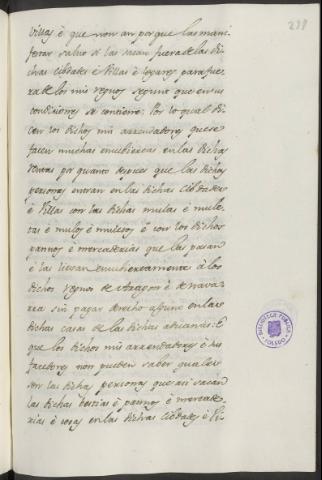 238
Villas é que non an por que las mani
festar salvo si las sacan fuera de las di
chas Cibdades é Villas é logares para fue
ra de los mis regnos segunt que en sus
condiciones se contiene: Por lo qual di
cen los dichos mis arrendadores que se
facen muchas encubiertas en las dichas
rentas por quanto despues que las dichas
personas entran en las dichas Cibdades
é Villas con las dichas mulas é mule
tas é mulos é muletos é con los dichos
pannos é mercaderias que las pasan
é las lievan encubiertamente á los
dichos regnos de Aragon é de Navar
rea sin pagar derecho alguno en las
dichas casas de las dichas aduanas: E
que los dichos mis arrendadores é sus
facedores non pueden saber quales
son las dichas personas que asi sacan
las dichas bestias é pannos é mercade
rias é cosas en las dichas Cibdades é Vi-
BIBLIOTECA PUBLICA
TOLEDO